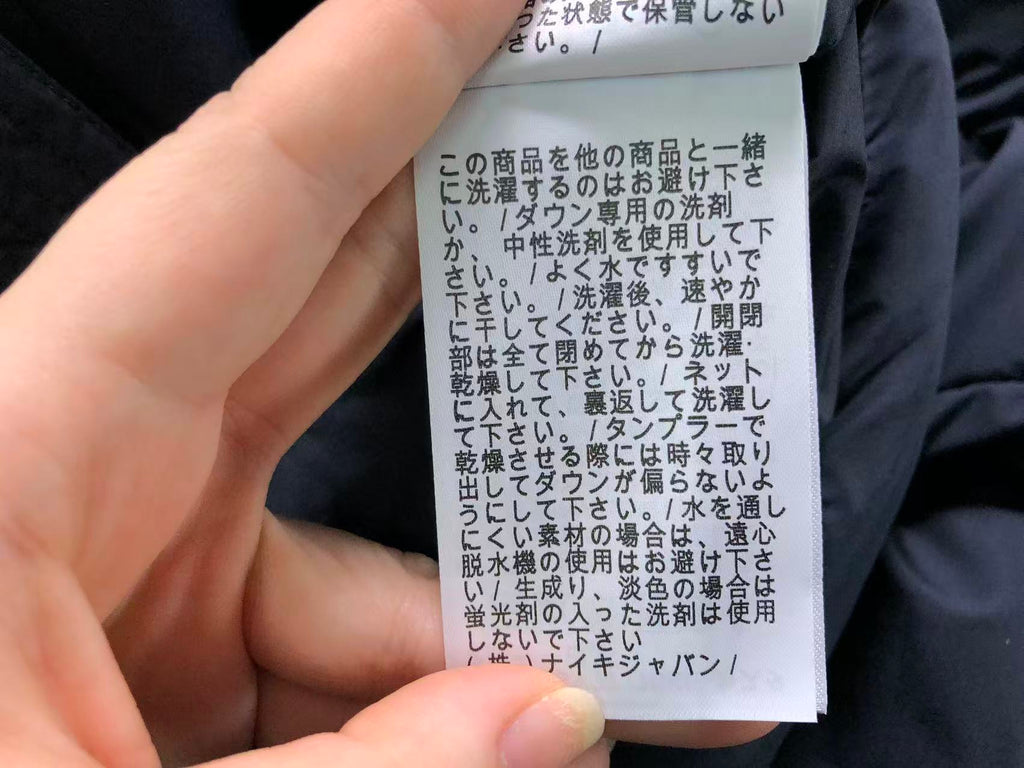 った状態で保管しない
さい。/
この商品を他の商品と一緒
に洗濯するのはお避け下さ
い。/ダウン専用の洗剤
か、中性洗剤を使用して下
さい。/よく水ですすいで
下さい。/洗濯後、速やか
に干してください。/開閉
部は全て閉めてから洗濯・
乾燥して下さい。/ネット
に入れて、裏返して洗濯し
て下さい。/タンブラーで
乾燥させる際には時々取り
出してダウンが偏らないよ
うにして下さい。/水を通し
にくい素材の場合は、遠心
脱水機の使用はお避け下さ
い/生成り、淡色の場合は
蛍光剤の入った洗剤は使用
しないで下さい
(株)ナイキジャパン/